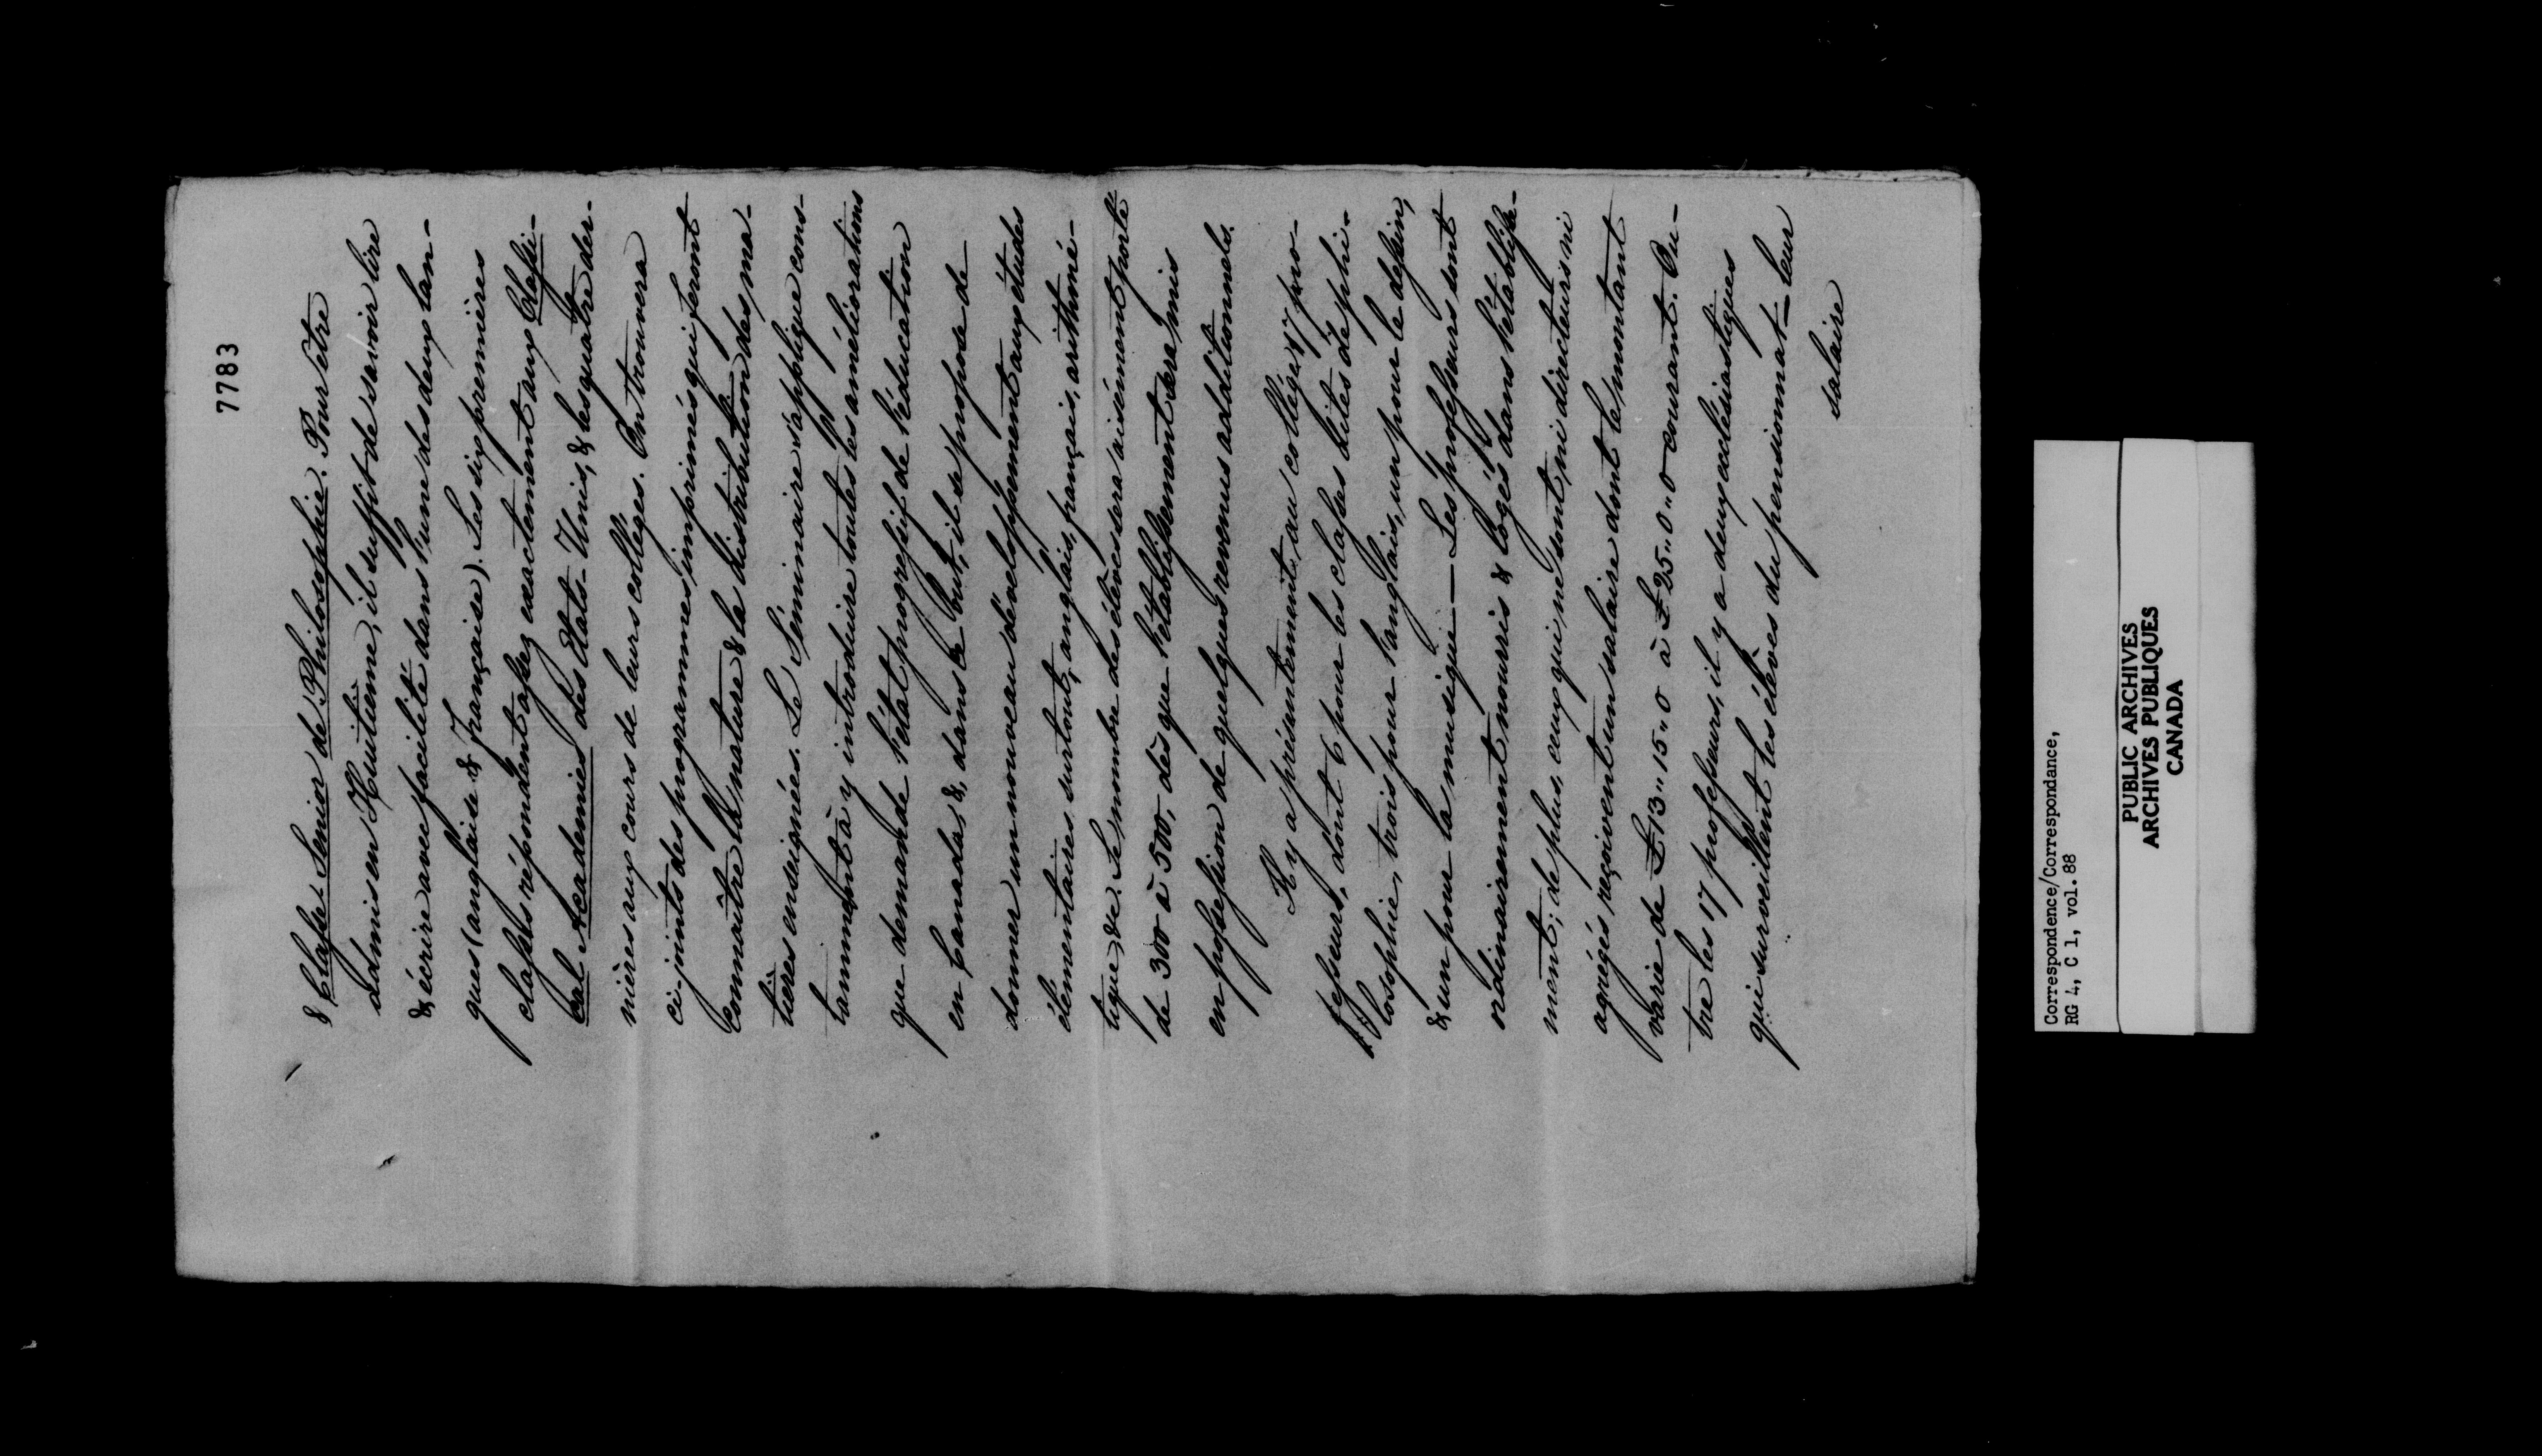 7783
& Classe Senior de Philosophie. Pour être
admis en Huitième, il suffit de savoir lire
& écrire avec facilité dans l'une des deux lan-
gues (anglaise & française). Les six premières
classes répondent assez exactement aux Classi-
cal Academies des États-Unis, & les quatre der-
nières aux cours de leurs collèges. On trouvera
ci-joints des programmes imprimés qui feront
connaître la nature & la distribution des ma-
tières enseignées. Le Séminaire s'applique cons-
tamment à y introduire toutes les améliorations
que demande l'état progressif de l'éducation
en Canada, &, dans ce but, il se propose de
donner un nouveau développement aux études
élémentaires surtout, anglais, français, arithmé-
tique, &c. Le nombre des élèves sera aisément porté
de 300 à 500, dès que l'établissement sera mis
en possession de quelques revenus additionnels.
Il y a présentement au collége 17 pro-
fesseurs, dont 6 pour les classes dites de phi-
losophie, trois pour l'anglais, un pour le dessin,
& un pour la musique — Les professeurs sont
ordinairement nourris & logés dans l'établisse-
ment; de plus, ceux qui ne sont, ni directeurs ni
agrégés reçoivent un salaire dont le montant
varie de £13„15„0 à £25„0„0 courant. Ou-
tre les 17 professeurs, il y a deux ecclésiastiques
qui surveillent les élèves du pensionnat — leur
salaire
Correspondence/Correspondance,
RG 4, C 1, vol. 88
PUBLIC ARCHIVES
ARCHIVES PUBLIQUES
CANADA